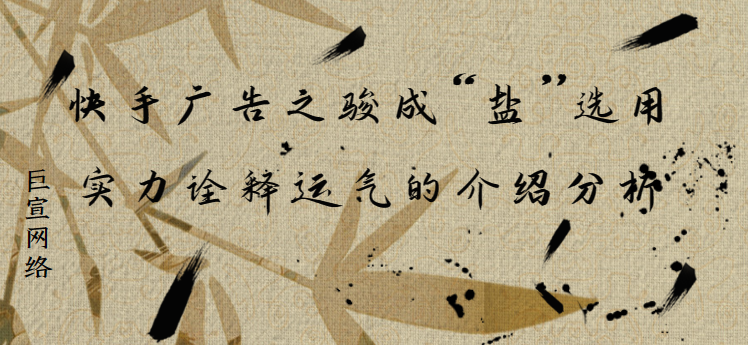 快手广告之骏成“盐”选用
实力诠释运气的介绍分析
巨宣网络